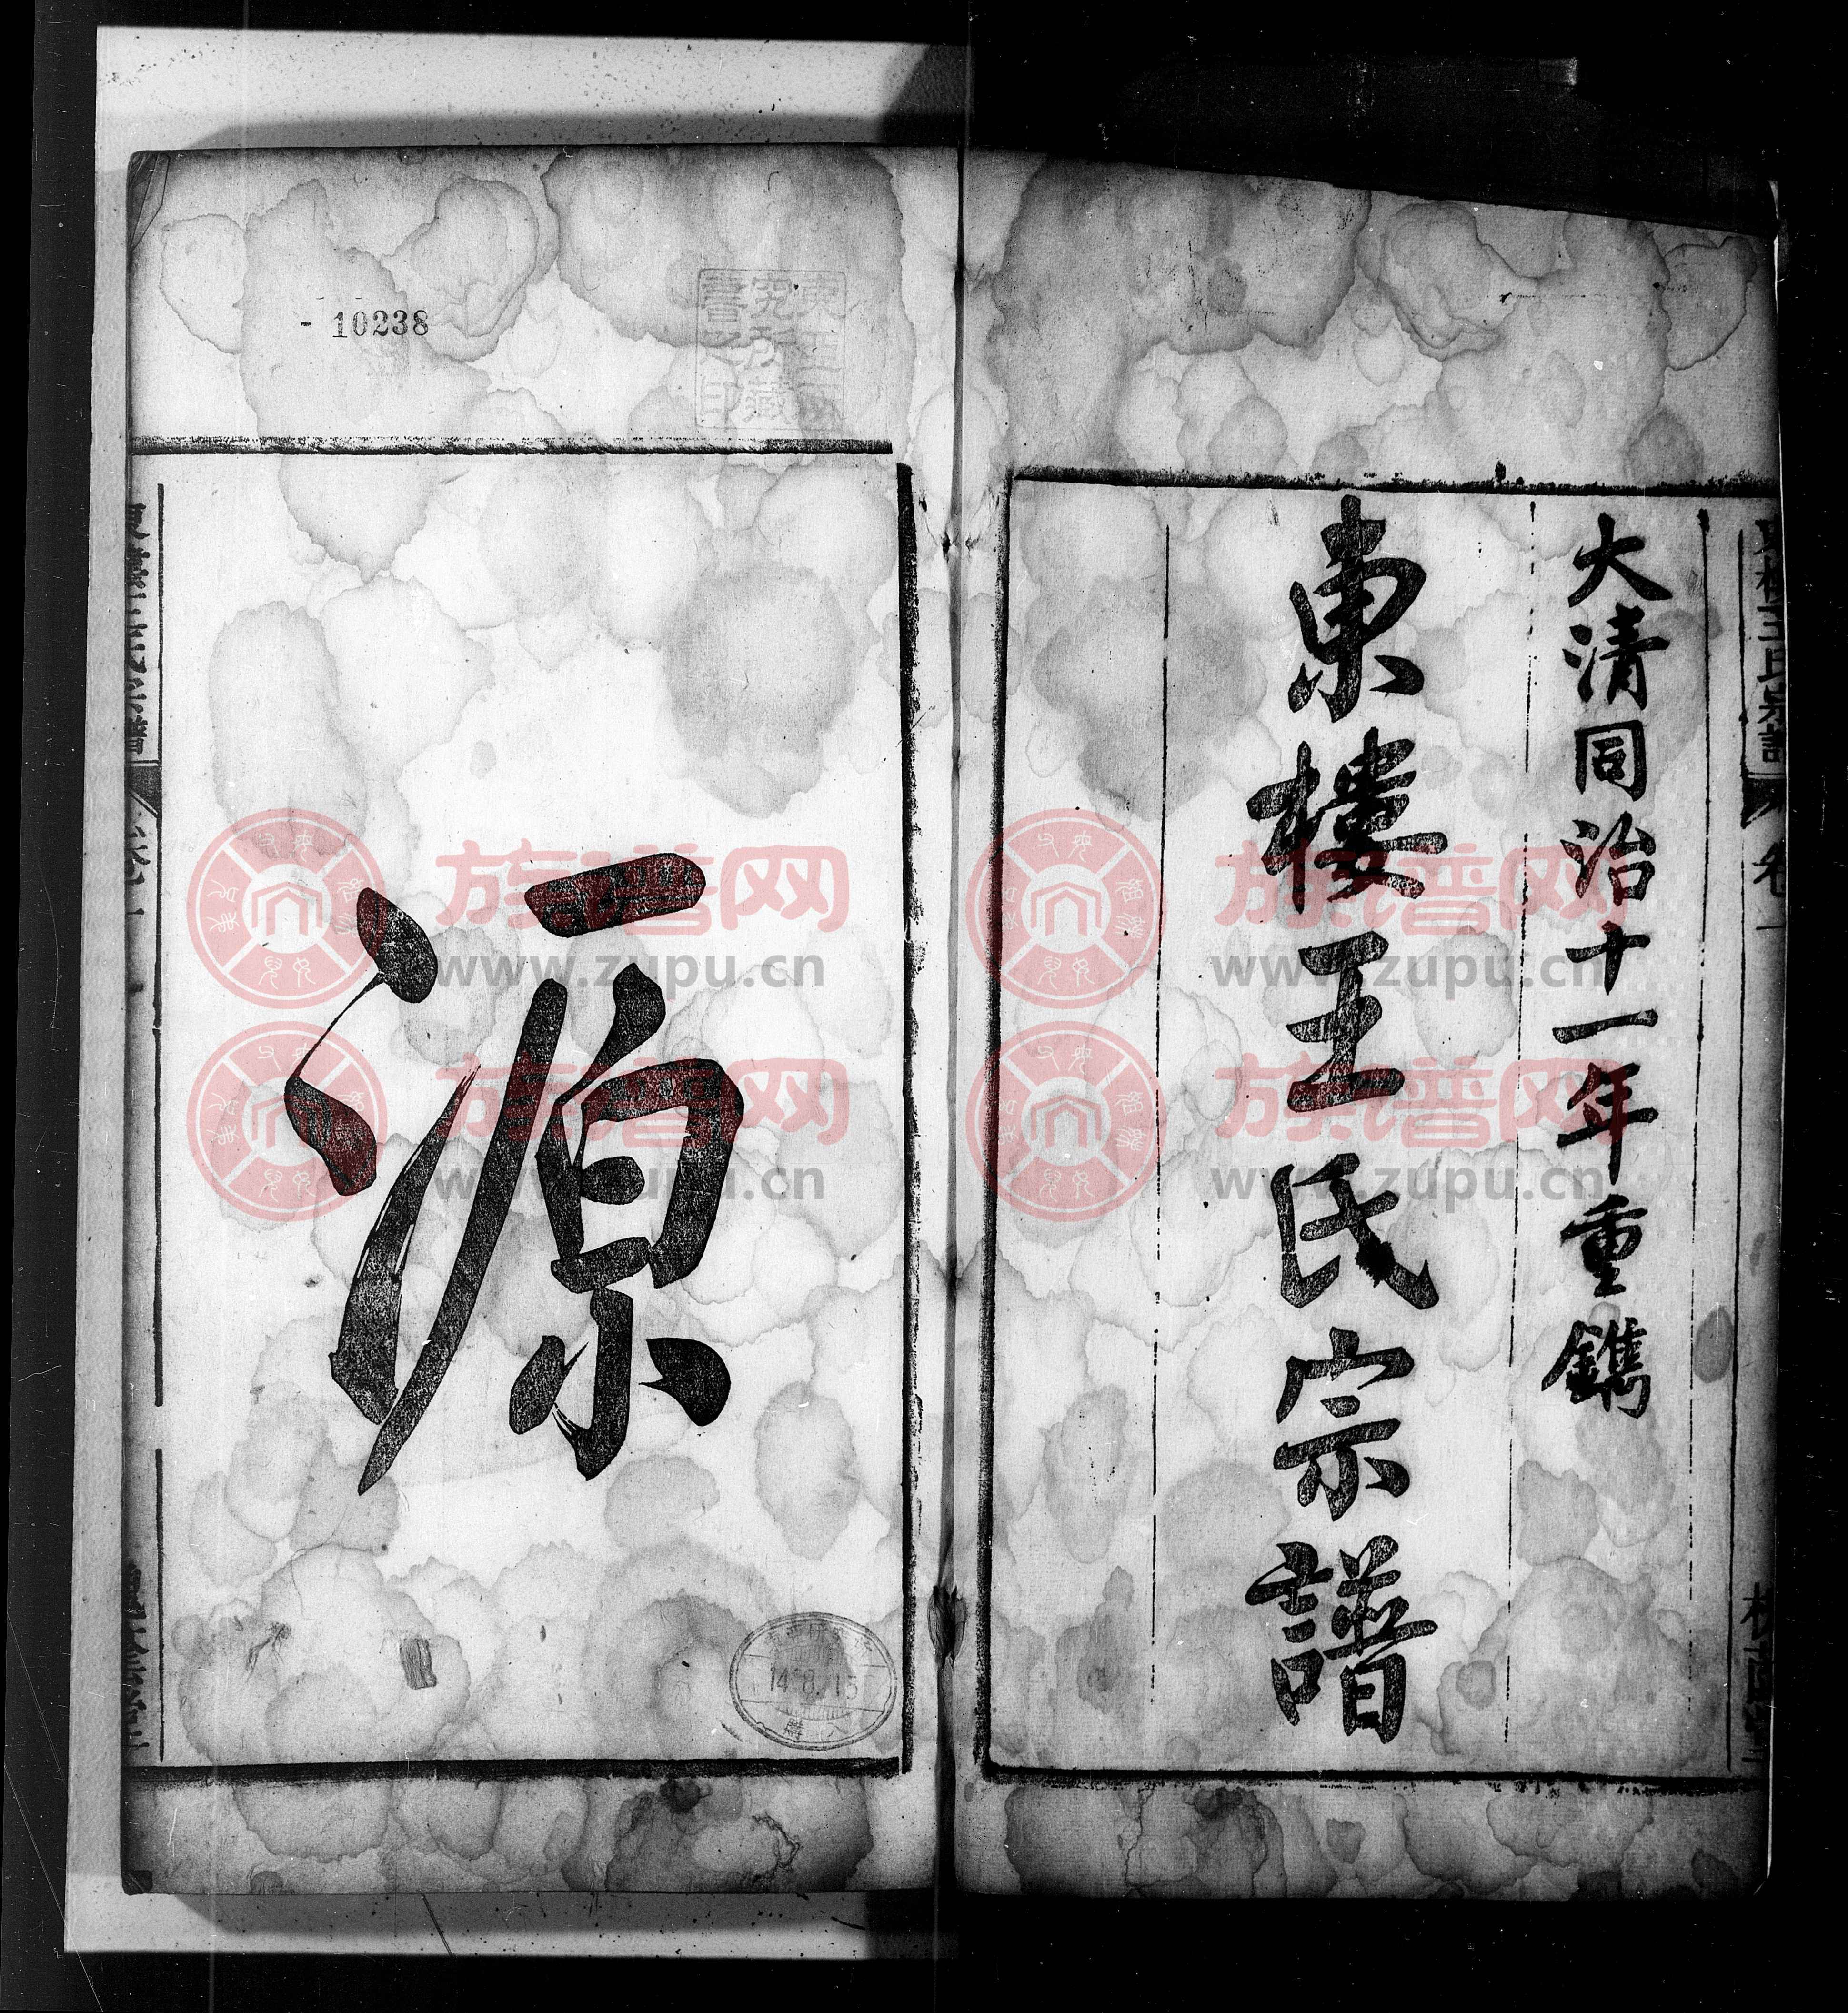 大清同治十一年重鐫
東樓王氏宗譜
- 10238
源
14.8.15
族谱网
www.zupu.cn
族谱网
www.zupu.cn
族谱网
www.zupu.cn
族谱网
www.zupu.cn